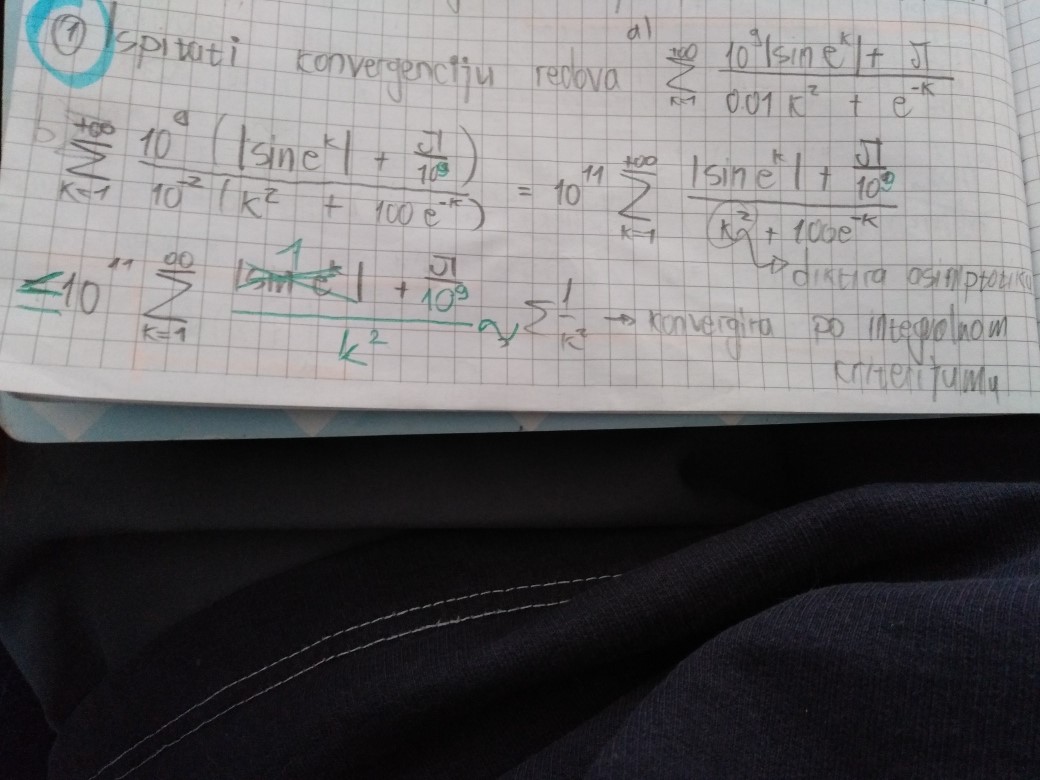 ① Ispitati konvergenciju redova a) $\sum_{k=1}^{+\infty} \frac{10^9 |\sin e^k| + \pi}{0.01 k^2 + e^{-k}}$
$\sum_{k=1}^{+\infty} \frac{10^9 (|\sin e^k| + \frac{\pi}{10^9})}{10^{-2} (k^2 + 100 e^{-k})} = 10^{11} \sum_{k=1}^{+\infty} \frac{|\sin e^k| + \frac{\pi}{10^9}}{k^2 + 100 e^{-k}}$
→ diktira asimptotiku
$\leq 10^{11} \sum_{k=1}^{\infty} \frac{1 + \frac{\pi}{10^9}}{k^2} \sim \sum \frac{1}{k^2}$ → konvergira po integralnom
kriterijumu